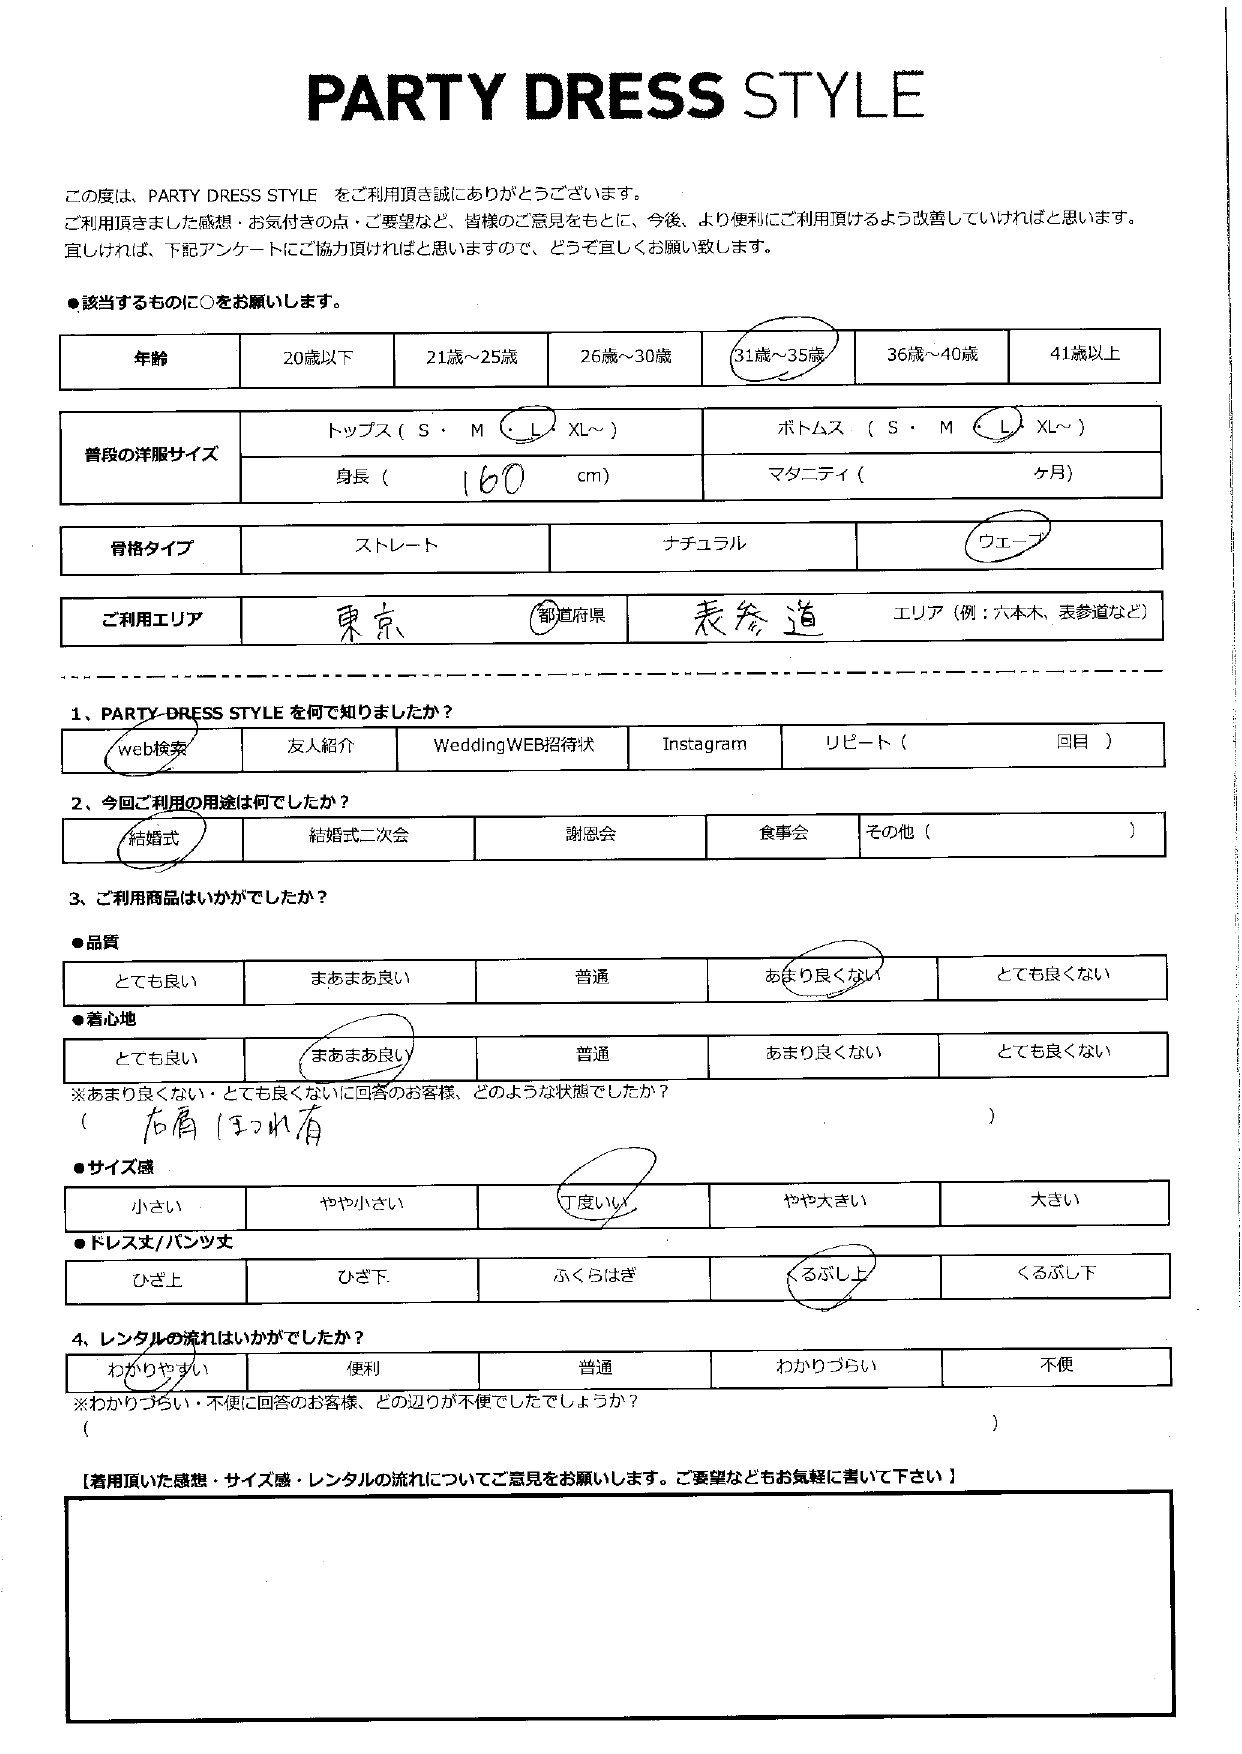 PARTY DRESS STYLE
この度は、PARTY DRESS STYLE をご利用頂き誠にありがとうございます。
ご利用頂きました感想・お気付きの点・ご要望など、皆様のご意見をもとに、今後、より便利にご利用頂けるよう改善していければと思います。
宜しければ、下記アンケートにご協力頂ければと思いますので、どうぞ宜しくお願い致します。
●該当するものに○をお願いします。
年齢 20歳以下 21歳～25歳 26歳～30歳 31歳～35歳 36歳～40歳 41歳以上
普段の洋服サイズ
トップス ( S ・ M ・ L ・ XL～ ) ボトムス ( S ・ M ・ L ・ XL～ )
身長 ( 160 cm) マタニティ ( ヶ月)
骨格タイプ ストレート ナチュラル ウェーブ
ご利用エリア 東京 都道府県 表参道 エリア（例：六本木、表参道など）
1、PARTY DRESS STYLE を何で知りましたか？
web検索 友人紹介 WeddingWEB招待状 Instagram リピート ( 回目 )
2、今回ご利用の用途は何でしたか？
結婚式 結婚式二次会 謝恩会 食事会 その他 ( )
3、ご利用商品はいかがでしたか？
●品質
とても良い まあまあ良い 普通 あまり良くない とても良くない
●着心地
とても良い まあまあ良い 普通 あまり良くない とても良くない
※あまり良くない・とても良くないに回答のお客様、どのような状態でしたか？
( 右肩 ほつれ有 )
●サイズ感
小さい やや小さい 丁度いい やや大きい 大きい
●ドレス丈/パンツ丈
ひざ上 ひざ下 ふくらはぎ くるぶし上 くるぶし下
4、レンタルの流れはいかがでしたか？
わかりやすい 便利 普通 わかりづらい 不便
※わかりづらい・不便に回答のお客様、どの辺りが不便でしたでしょうか？
( )
【着用頂いた感想・サイズ感・レンタルの流れについてご意見をお願いします。ご要望などもお気軽に書いて下さい】